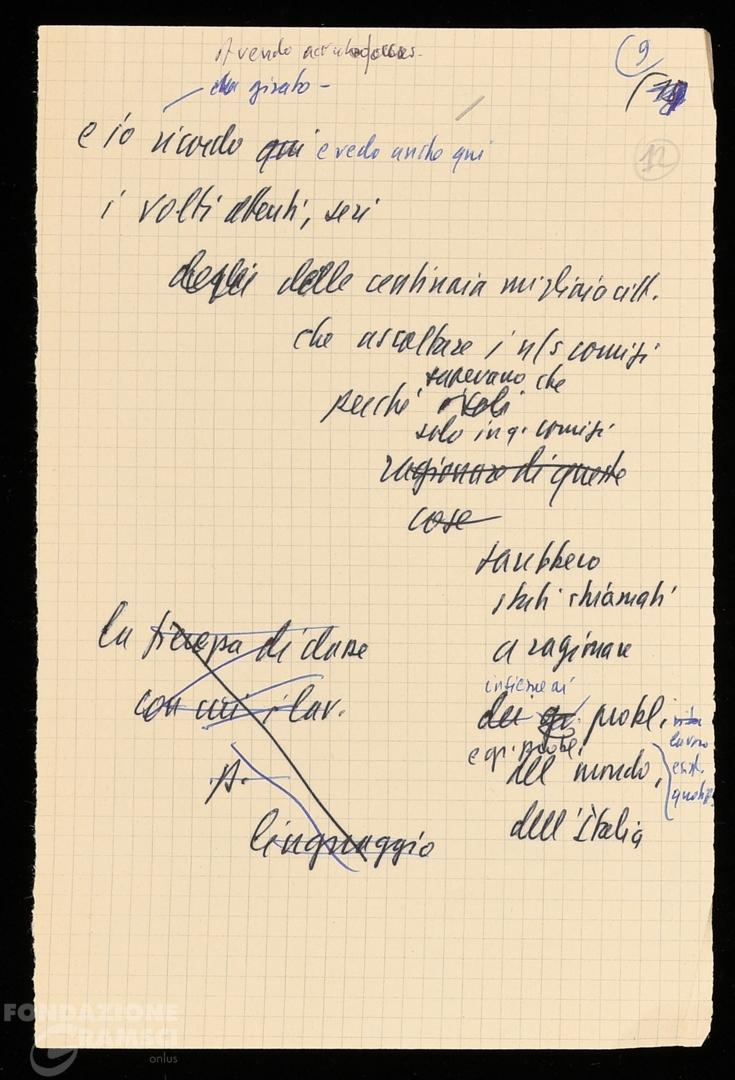 Avendo
girato -
9
12
e io ricordo qui e vedo anche qui
i volti attenti, seri
degli delle centinaia migliaia citt.
che ascoltare i n/s comizi
sapevano che
perché
solo in qi comizi
ragionare di queste
cose
sarebbero
stati chiamati
a ragionare
insieme ai
dei probl.
e qi probl.
del mondo,
dell'Italia
vita
lavoro
esist.
quotid.
la di dare
con cui i lav.
p.
linguaggio
FONDAZIONE
GRAMSCI
onlus